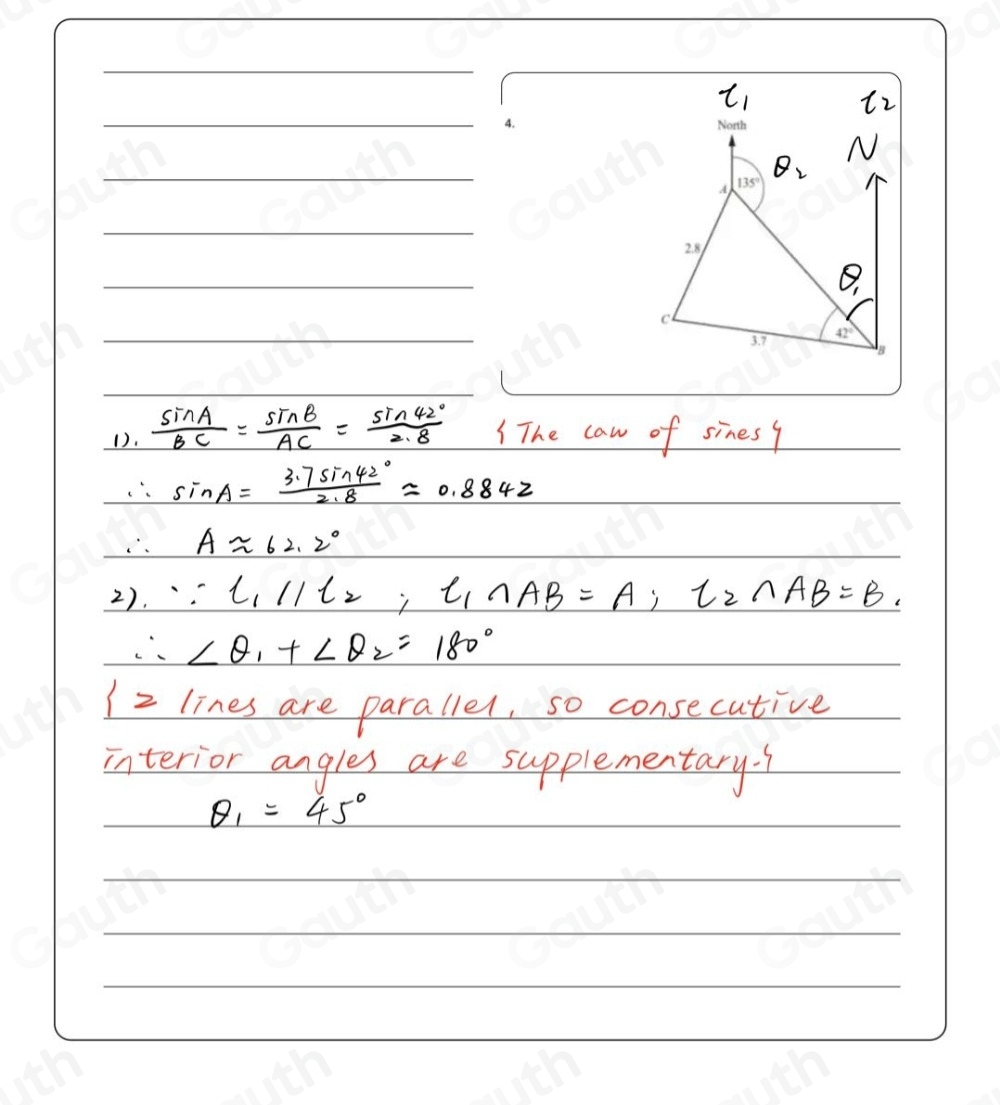 4.
t₁ t₂
North N
135° θ₂
A
2.8
θ₁
C 42°
3.7 B
1). sinA/BC = sinB/AC = sin42°/2.8 {The law of sines}
∴ sinA = 3.7sin42°/2.8 ≈ 0.8842
∴ A ≈ 62.2°
2). ∵ l₁ // l₂ ; l₁ ∩ AB = A ; l₂ ∩ AB = B.
∴ ∠θ₁ + ∠θ₂ = 180°
{2 lines are parallel, so consecutive
interior angles are supplementary.}
θ₁ = 45°
Gauth